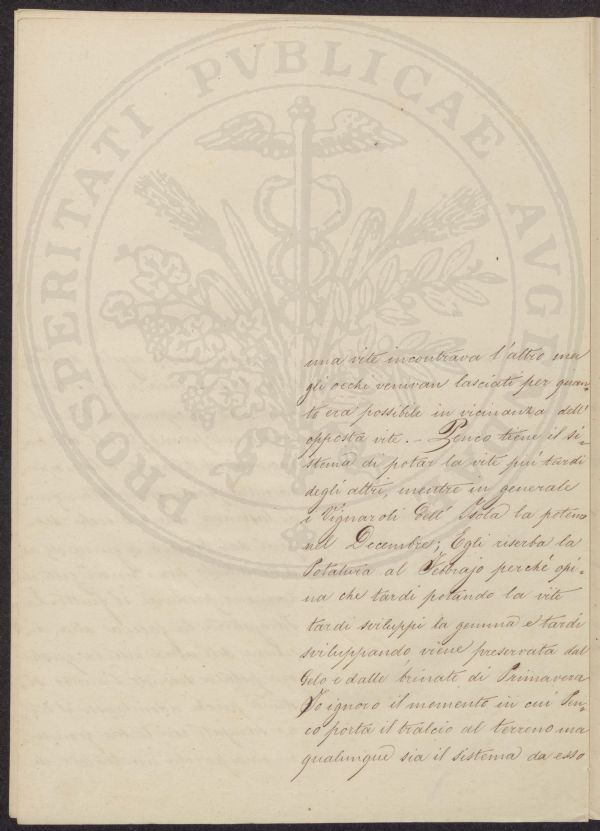 PROSPERITATI PVBLICAE AVGENDAE
una vite incontrava l'altro ma
gli occhi venivan lasciati per quan-
to era possibile in vicinanza dell'
opposta vite. – Penco tiene il si-
stema di potar la vite più tardi
degli altri, mentre in generale
i Vignaroli dell' Isola la potano
nel Decembre; Egli riserba la
Potatura al Febbrajo perché opi-
na che tardi potando la vite
tardi sviluppi la gemma e tardi
sviluppando viene preservata dal
Gelo e dalle brinate di Primavera
Io ignoro il momento in cui Pen-
co porta il tralcio al terreno ma
qualunque sia il sistema da esso